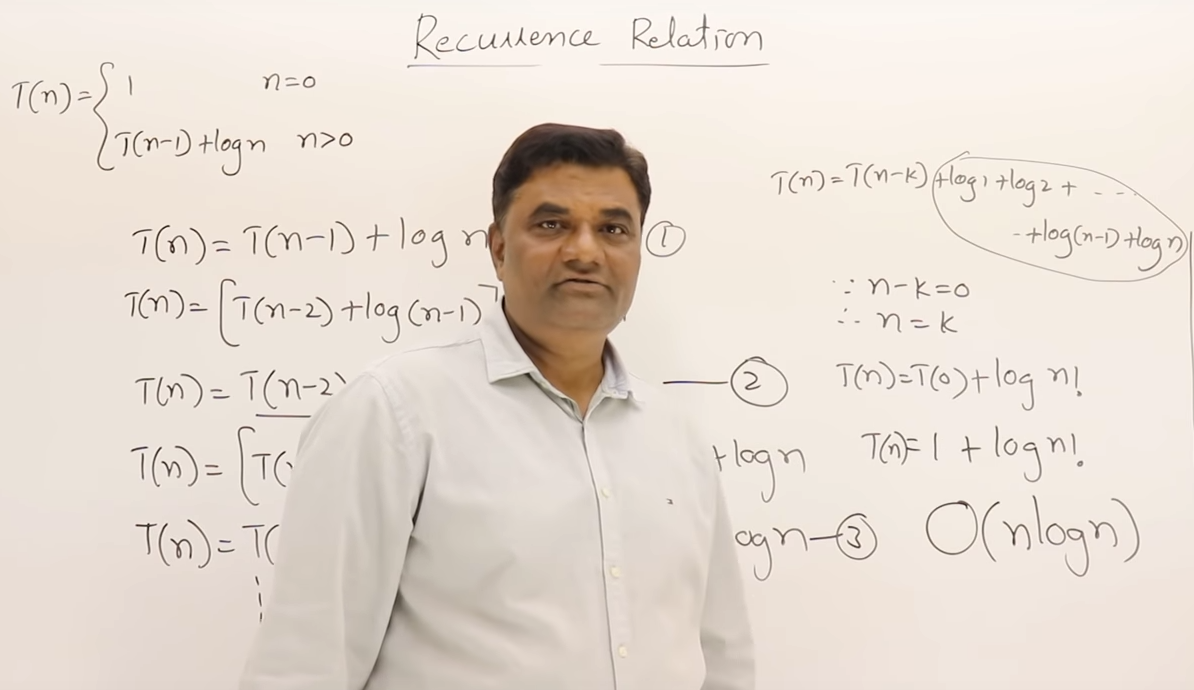 Recurrence Relation
T(n)= { 1 n=0
T(n-1)+logn n>0
T(n)= T(n-1)+log n ①
T(n)= [T(n-2)+log(n-1)]
T(n)= T(n-2) — ②
T(n)= [T( +logn
T(n)= T( ogn—③
T(n)=T(n-k)+log1+log2+ - - - -
-+log(n-1)+logn)
∵ n-k=0
∴ n=k
T(n)=T(0)+log n!
T(n)=1 + logn!
O(nlogn)